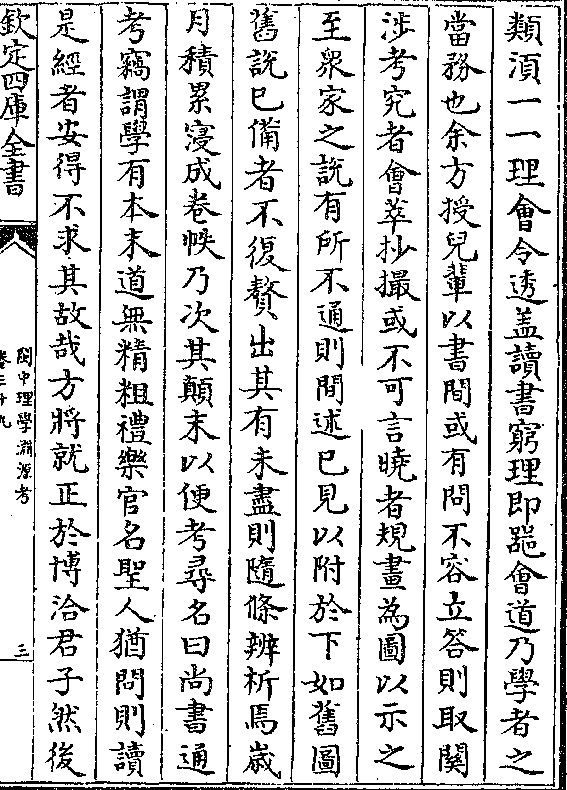 類湏一一理㑹令透盖讀書窮理即噐㑹道乃學者之
當務也余方授兒輩以書間或有問不容立答則取闗
涉考究者㑹萃抄撮或不可言曉者規畫為圖以示之
至衆家之說有所不通則間述已見以附於下如舊圖
舊說已備者不復贅出其有未盡則隨條辨析焉歳
月積累寖成卷帙乃次其顛末以便考尋名曰尚書通
考竊謂學有本末道無精粗禮樂官名聖人猶問則讀
是經者安得不求其故哉方將就正於博洽君子然後
欽定四庫全書
閩中理學淵源考
卷三十九
三